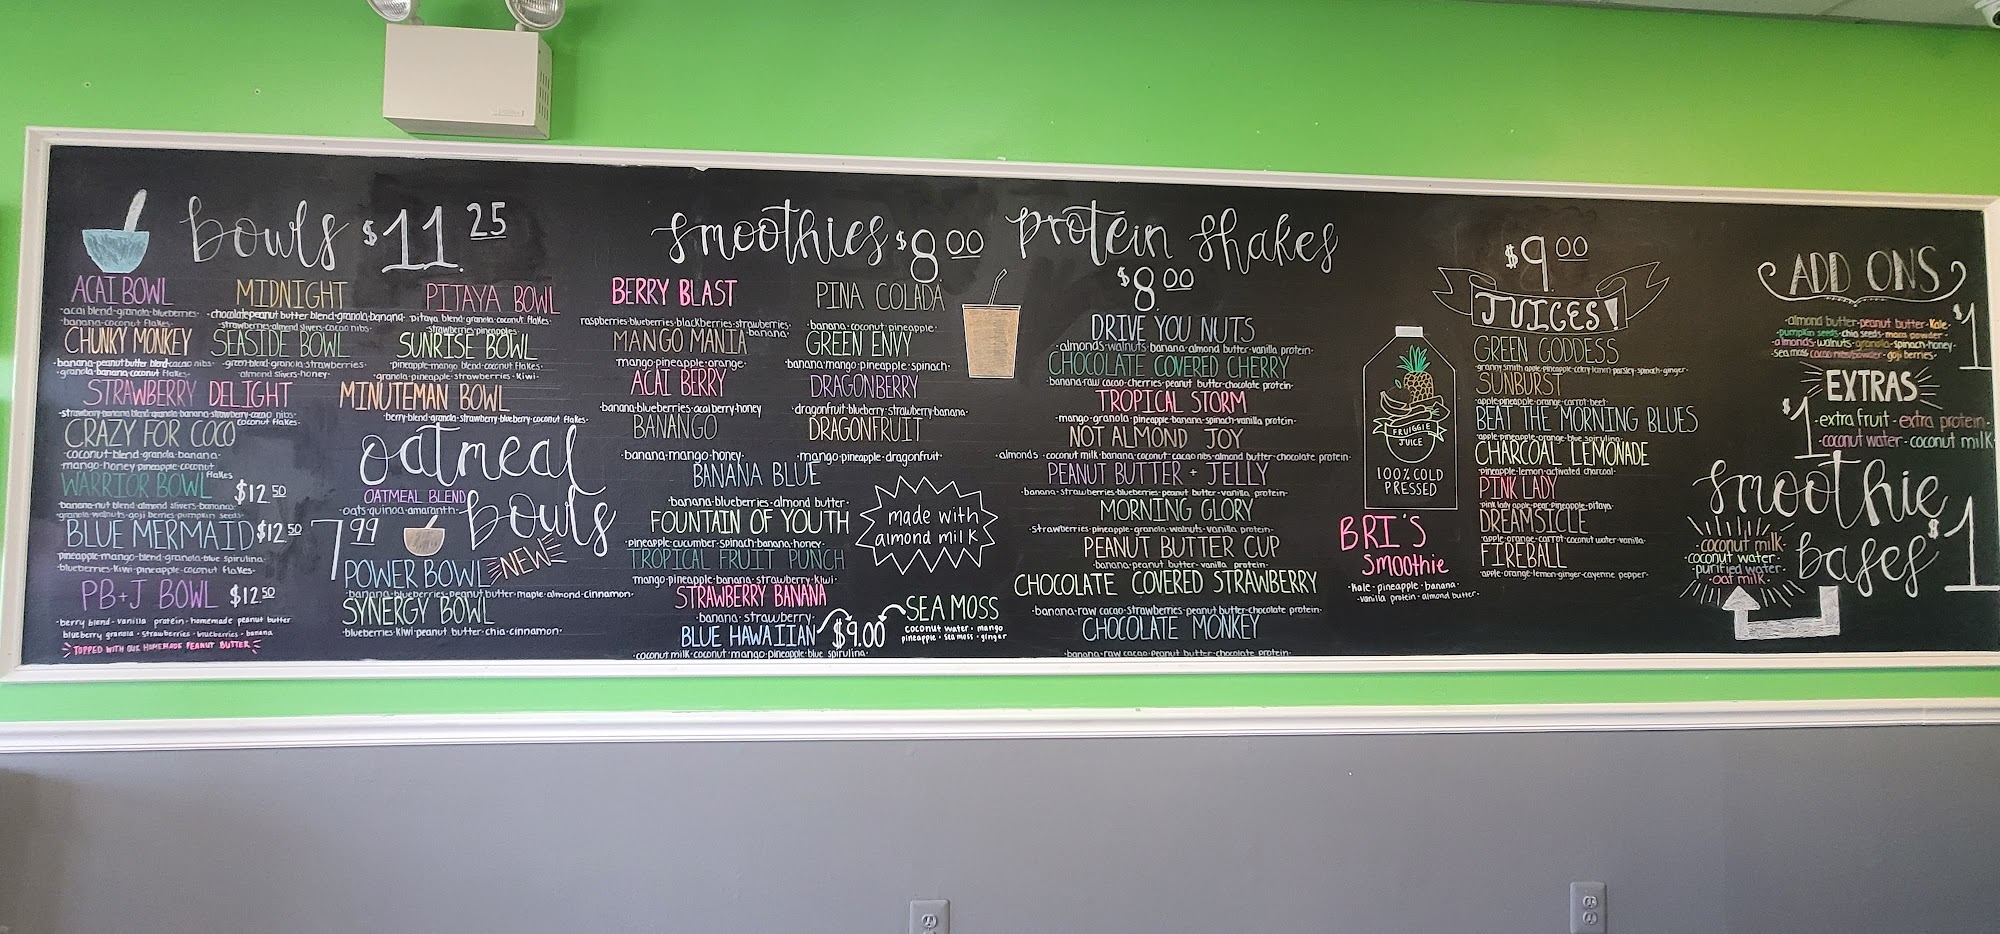 bowls $11.25
ACAI BOWL
·acai blend·granola·blueberries·
·banana·coconut flakes·
MIDNIGHT
·chocolate peanut butter blend·granola·banana·
·strawberries·almond slivers·cacao nibs·
PITAYA BOWL
·pitaya blend·granola·coconut flakes·
·strawberries·pineapples·
CHUNKY MONKEY
·banana·peanut butter blend·cacao nibs·
·granola·banana·coconut flakes·
SEASIDE BOWL
·green blend·granola·strawberries·
·almond slivers·honey·
SUNRISE BOWL
·pineapple·mango blend·coconut flakes·
·granola·pineapple·strawberries·kiwi·
STRAWBERRY DELIGHT
·strawberry·banana blend·granola·banana·strawberry·cacao nibs·
·coconut flakes·
MINUTEMAN BOWL
·berry blend·granola·strawberry·blueberry·coconut flakes·
CRAZY FOR COCO
·coconut blend·granola·banana·
·mango·honey·pineapple·coconut flakes
WARRIOR BOWL $12.50
·banana·nut blend·almond slivers·banana·
·granola·walnuts·goji berries·pumpkin seeds·
BLUE MERMAID $12.50
·pineapple·mango·blend·granola·blue spirulina·
·blueberries·kiwi·pineapple·coconut flakes·
PB+J BOWL $12.50
·berry blend·vanilla protein·homemade peanut butter
blueberry granola·strawberries·blueberries·banana
*TOPPED WITH OUR HOMEMADE PEANUT BUTTER*
oatmeal bowls
7.99
OATMEAL BLEND
·oats·quinoa·amaranth·
POWER BOWL NEW
·banana·blueberries·peanut butter·maple·almond·cinnamon·
SYNERGY BOWL
·blueberries·kiwi·peanut butter·chia·cinnamon·
smoothies $8.00
BERRY BLAST
·raspberries·blueberries·blackberries·strawberries·
·banana·
PINA COLADA
·banana·coconut·pineapple·
MANGO MANIA
·mango·pineapple·orange·
GREEN ENVY
·banana·mango·pineapple·spinach·
ACAI BERRY
·banana·blueberries·acai berry·honey
DRAGONBERRY
·dragonfruit·blueberry·strawberry·banana·
BANANGO
·banana·mango·honey·
DRAGONFRUIT
·mango·pineapple·dragonfruit·
BANANA BLUE
·banana·blueberries·almond butter·
FOUNTAIN OF YOUTH
·pineapple·cucumber·spinach·banana·honey·
TROPICAL FRUIT PUNCH
mango·pineapple·banana·strawberry·kiwi·
STRAWBERRY BANANA
·banana·strawberry·
BLUE HAWAIIAN $9.00
·coconut milk·coconut·mango·pineapple·blue spirulina·
SEA MOSS
coconut water·mango
pineapple·sea moss·ginger
made with
almond milk
protein shakes
$8.00
DRIVE YOU NUTS
·almonds·walnuts·banana·almond butter·vanilla protein·
CHOCOLATE COVERED CHERRY
·banana·raw cacao·cherries·peanut butter·chocolate protein·
TROPICAL STORM
·mango·granola·pineapple·banana·spinach·vanilla protein·
NOT ALMOND JOY
·almonds·coconut milk·banana·coconut·cacao nibs·almond butter·chocolate protein·
PEANUT BUTTER + JELLY
·banana·strawberries·blueberries·peanut butter·vanilla protein·
MORNING GLORY
·strawberries·pineapple·granola·walnuts·vanilla protein·
PEANUT BUTTER CUP
·banana·peanut butter·vanilla protein·
CHOCOLATE COVERED STRAWBERRY
·banana·raw cacao·strawberries·peanut butter·chocolate protein·
CHOCOLATE MONKEY
·banana·raw cacao·peanut butter·chocolate protein·
FRUIGGIE
JUICE
100% COLD
PRESSED
BRI'S
Smoothie
·kale·pineapple·banana·
·vanilla protein·almond butter·
$9.00
JUICES!
GREEN GODDESS
·granny smith apple·pineapple·celery·lemon·parsley·spinach·ginger·
SUNBURST
·apple·pineapple·orange·carrot·beet·
BEAT THE MORNING BLUES
·apple·pineapple·orange·blue spirulina·
CHARCOAL LEMONADE
·pineapple·lemon·activated charcoal·
PINK LADY
·pink lady apple·pear·pineapple·pitaya·
DREAMSICLE
·apple·orange·carrot·coconut water·vanilla·
FIREBALL
·apple·orange·lemon·ginger·cayenne pepper·
ADD ONS
$1
·almond butter·peanut butter·kale·
·pumpkin seeds·chia seeds·maca powder·
·almonds·walnuts·granola·spinach·honey·
·sea moss·cacao nibs/powder·goji berries·
EXTRAS
$1
·extra fruit·extra protein·
·coconut water·coconut milk·
smoothie
bases $1
·coconut milk·
·coconut water·
·purified water·
·oat milk·